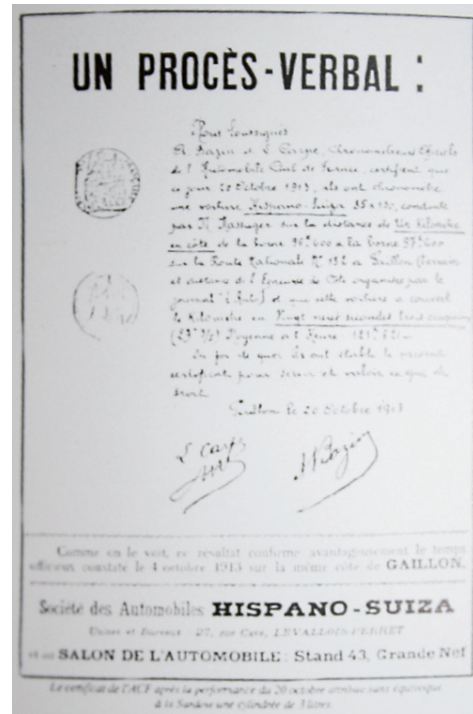 UN PROCÈS-VERBAL :
Nous soussignés
A. Bazin et L. Carpe, Chronométreurs Officiels
de l'Automobile Club de France, certifient que
ce jour 20 Octobre 1913, ils ont chronométré
une voiture Hispano-Suiza conduite
par M. Massuger sur la distance de Un Kilomètre
en côte de la borne 96k600 à la borne 97k600
sur la Route Nationale N° 182 à Gaillon (terrain
et distance de l'Epreuve de Côte organisée par le
journal "l'Auto") et que cette voiture a couvert
le Kilomètre en Vingt neuf secondes trois cinquièmes
Moyenne à l'Heure
En foi de quoi ils ont établi le présent
certificat pour servir et valoir ce que de
droit.
Gaillon le 20 Octobre 1913
L Carpe
Bazin
Comme on le voit, ce résultat confirme avantageusement le temps
officieux constaté le 4 octobre 1913 sur la même côte de GAILLON.
Société des Automobiles HISPANO-SUIZA
Usines et Bureaux : 27, rue Cavé, LEVALLOIS-PERRET
et au SALON DE L'AUTOMOBILE : Stand 43, Grande Nef
Le certificat de l'ACF après la performance du 20 octobre attribue sans équivoque
à la Sardine une cylindrée de 3 litres